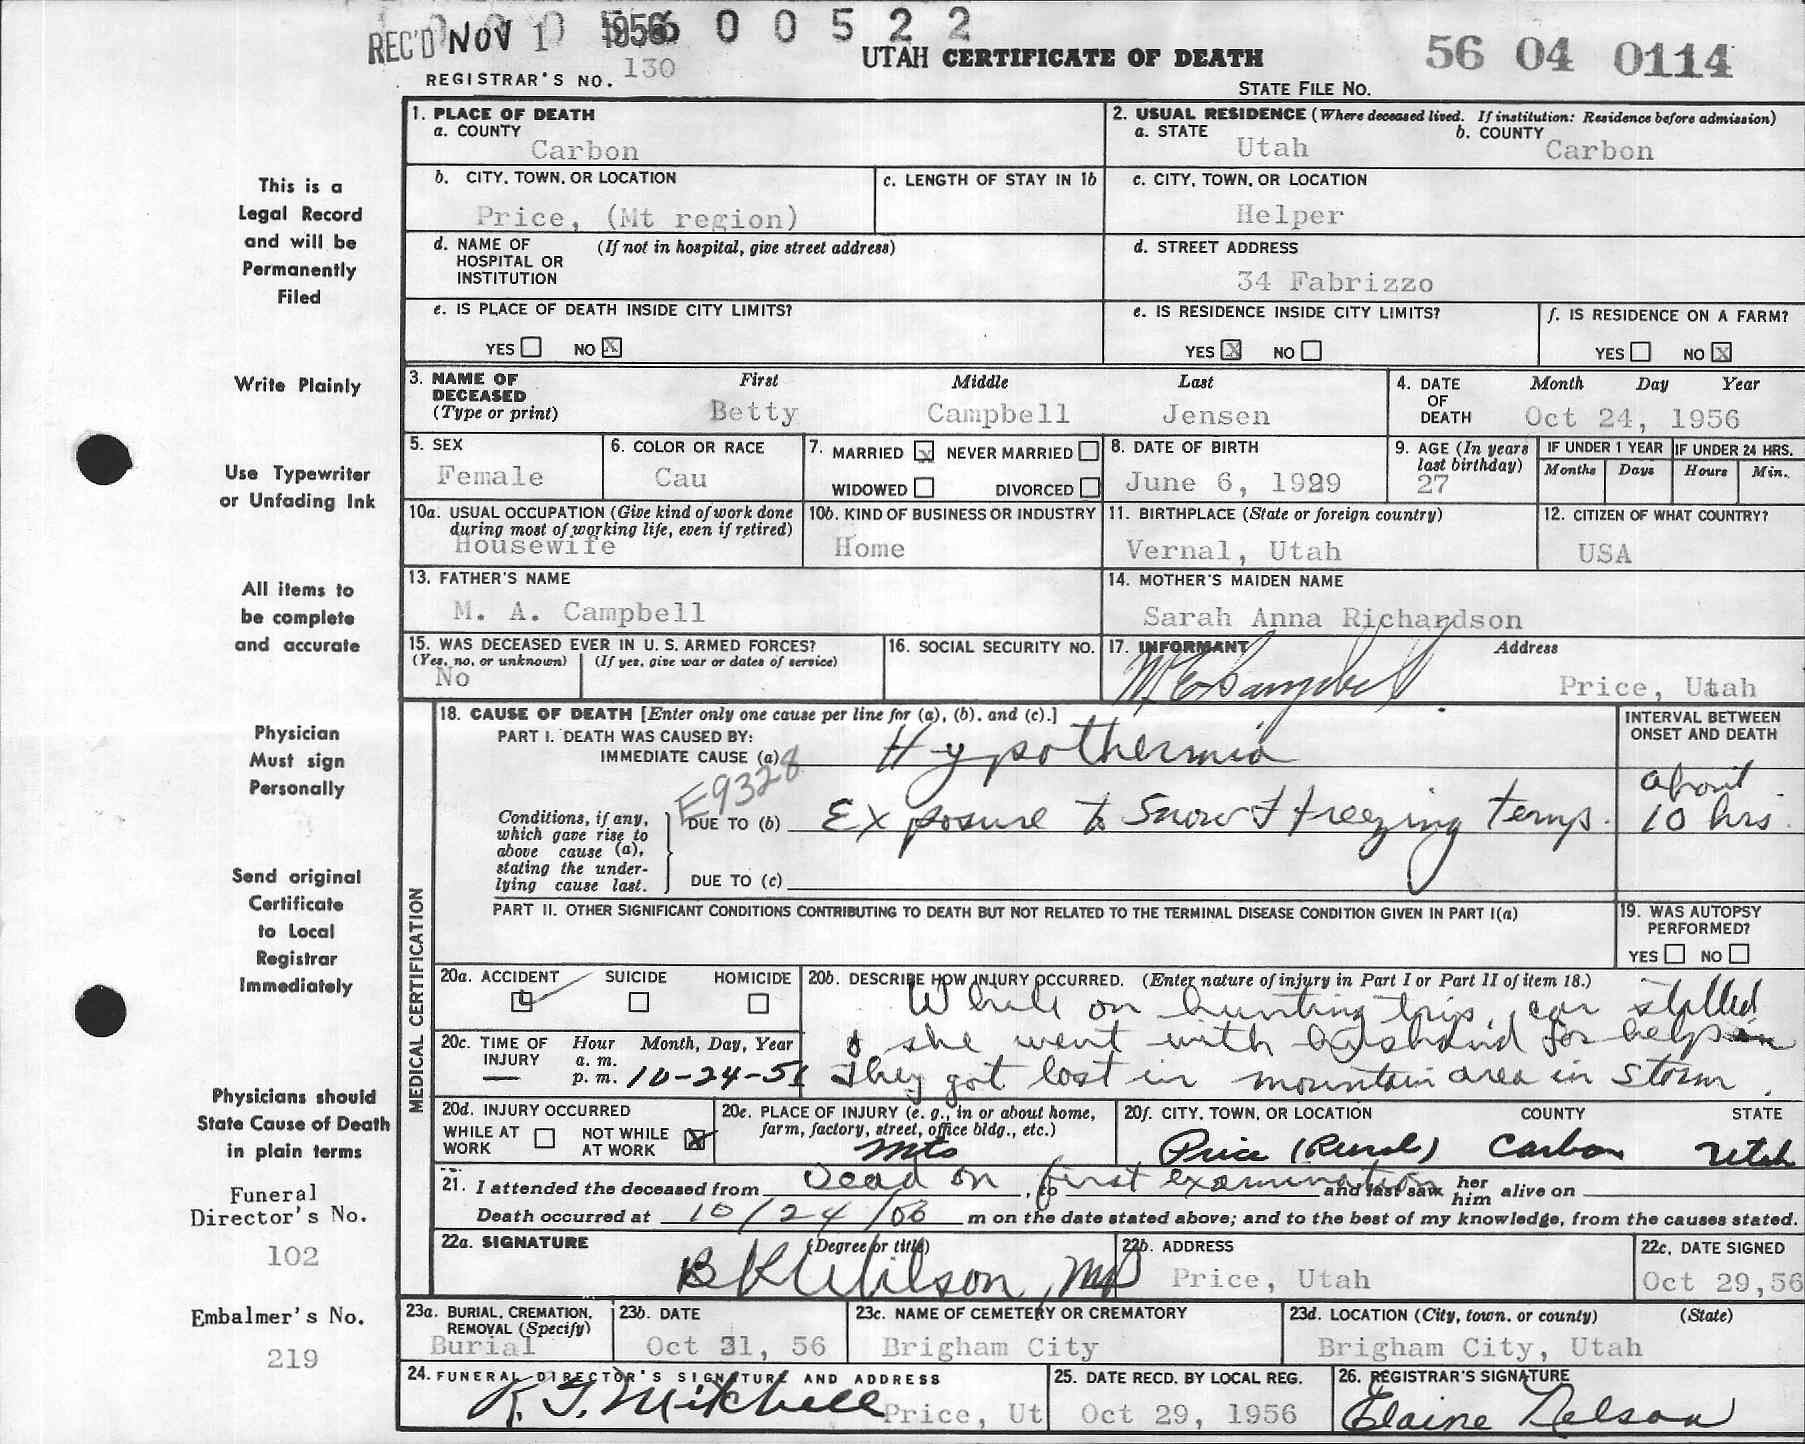 REC'D NOV 1 0 1956 0 0 5 2 2
REGISTRAR'S NO. 130
UTAH CERTIFICATE OF DEATH
STATE FILE NO. 56 04 0114
This is a
Legal Record
and will be
Permanently
Filed
Write Plainly
Use Typewriter
or Unfading Ink
All items to
be complete
and accurate
Physician
Must sign
Personally
Send original
Certificate
to Local
Registrar
Immediately
Physicians should
State Cause of Death
in plain terms
Funeral
Director's No.
102
Embalmer's No.
219
1. PLACE OF DEATH
a. COUNTY
Carbon
2. USUAL RESIDENCE (Where deceased lived. If institution: Residence before admission)
a. STATE Utah b. COUNTY Carbon
b. CITY, TOWN, OR LOCATION
Price, (Mt region)
c. LENGTH OF STAY IN 1b
c. CITY, TOWN, OR LOCATION
Helper
d. NAME OF HOSPITAL OR INSTITUTION (If not in hospital, give street address)
d. STREET ADDRESS
34 Fabrizzo
e. IS PLACE OF DEATH INSIDE CITY LIMITS?
YES ☐ NO ☒
e. IS RESIDENCE INSIDE CITY LIMITS?
YES ☒ NO ☐
f. IS RESIDENCE ON A FARM?
YES ☐ NO ☒
3. NAME OF DECEASED (Type or print)
First Middle Last
Betty Campbell Jensen
4. DATE OF DEATH Month Day Year
Oct 24, 1956
5. SEX
Female
6. COLOR OR RACE
Cau
7. MARRIED ☒ NEVER MARRIED ☐
WIDOWED ☐ DIVORCED ☐
8. DATE OF BIRTH
June 6, 1929
9. AGE (In years last birthday)
27
IF UNDER 1 YEAR IF UNDER 24 HRS.
Months Days Hours Min.
10a. USUAL OCCUPATION (Give kind of work done during most of working life, even if retired)
Housewife
10b. KIND OF BUSINESS OR INDUSTRY
Home
11. BIRTHPLACE (State or foreign country)
Vernal, Utah
12. CITIZEN OF WHAT COUNTRY?
USA
13. FATHER'S NAME
M. A. Campbell
14. MOTHER'S MAIDEN NAME
Sarah Anna Richardson
15. WAS DECEASED EVER IN U. S. ARMED FORCES?
(Yes, no, or unknown) (If yes, give war or dates of service)
No
16. SOCIAL SECURITY NO.
17. INFORMANT Address
Campbell Price, Utah
MEDICAL CERTIFICATION
18. CAUSE OF DEATH [Enter only one cause per line for (a), (b), and (c).]
PART I. DEATH WAS CAUSED BY:
IMMEDIATE CAUSE (a) Hypothermia
INTERVAL BETWEEN ONSET AND DEATH
E9328
Conditions, if any, which gave rise to above cause (a), stating the underlying cause last.
DUE TO (b) Exposure to Snow & freezing temps. about 10 hrs.
DUE TO (c)
PART II. OTHER SIGNIFICANT CONDITIONS CONTRIBUTING TO DEATH BUT NOT RELATED TO THE TERMINAL DISEASE CONDITION GIVEN IN PART I(a)
19. WAS AUTOPSY PERFORMED?
YES ☐ NO ☐
20a. ACCIDENT SUICIDE HOMICIDE
☑ ☐ ☐
20b. DESCRIBE HOW INJURY OCCURRED. (Enter nature of injury in Part I or Part II of item 18.)
While on hunting trip, car stalled
& she went with husband for help
They got lost in mountain area in storm.
20c. TIME OF INJURY Hour Month, Day, Year
a. m.
— p. m. 10-24-56
20d. INJURY OCCURRED
WHILE AT WORK ☐ NOT WHILE AT WORK ☒
20e. PLACE OF INJURY (e. g., in or about home, farm, factory, street, office bldg., etc.)
Mts
20f. CITY, TOWN, OR LOCATION COUNTY STATE
Price (Rural) Carbon Utah
21. I attended the deceased from Dead on first examination, to and last saw her him alive on
Death occurred at 10/24/56 m on the date stated above; and to the best of my knowledge, from the causes stated.
22a. SIGNATURE (Degree or title)
B K Wilson, MD
22b. ADDRESS
Price, Utah
22c. DATE SIGNED
Oct 29, 56
23a. BURIAL, CREMATION, REMOVAL (Specify)
Burial
23b. DATE
Oct 31, 56
23c. NAME OF CEMETERY OR CREMATORY
Brigham City
23d. LOCATION (City, town, or county) (State)
Brigham City, Utah
24. FUNERAL DIRECTOR'S SIGNATURE AND ADDRESS
R. J. Mitchell Price, Ut
25. DATE RECD. BY LOCAL REG.
Oct 29, 1956
26. REGISTRAR'S SIGNATURE
Elaine Nelson